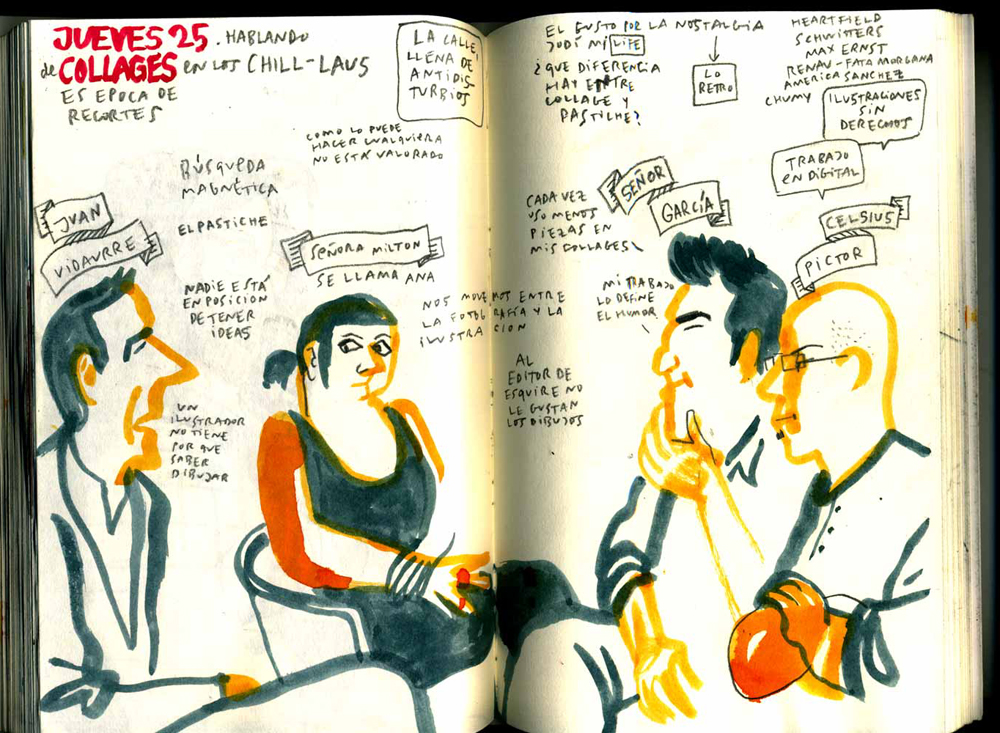 JUEVES 25. HABLANDO
de COLLAGES EN LOS CHILL-LAUS
ES EPOCA DE
RECORTES
LA CALLE,
LLENA DE
ANTIDIS-
TURBIOS
COMO LO PUEDE
HACER CUALQUIERA
NO ESTÁ VALORADO
BÚSQUEDA
MAGNÉTICA
JUAN
VIDAURRE
EL PASTICHE
SEÑORA MILTON
SE LLAMA ANA
NADIE ESTÁ
EN POSICION
DE TENER
IDEAS
NOS MOVEMOS ENTRE
LA FOTOGRAFÍA Y LA
ILUSTRACION
UN
ILUSTRADOR
NO TIENE
POR QUE
SABER
DIBUJAR
EL GUSTO POR LA NOSTALGIA
JODÍ MI LIFE
LO
RETRO
¿QUE DIFERENCIA
HAY ENTRE
COLLAGE Y
PASTICHE?
HEARTFIELD
SCHWITTERS
MAX ERNST
RENAU-FATA MORGANA
AMERICA SANCHEZ
CHUMY
ILUSTRACIONES
SIN
DERECHOS
TRABAJO
EN DIGITAL
SEÑOR
GARCÍA
CELSIUS
PICTOR
CADA VEZ
USO MENOS
PIEZAS EN
MIS COLLAGES
MI TRABAJO
LO DEFINE
EL HUMOR
AL
EDITOR DE
ESQUIRE NO
LE GUSTAN
LOS DIBUJOS